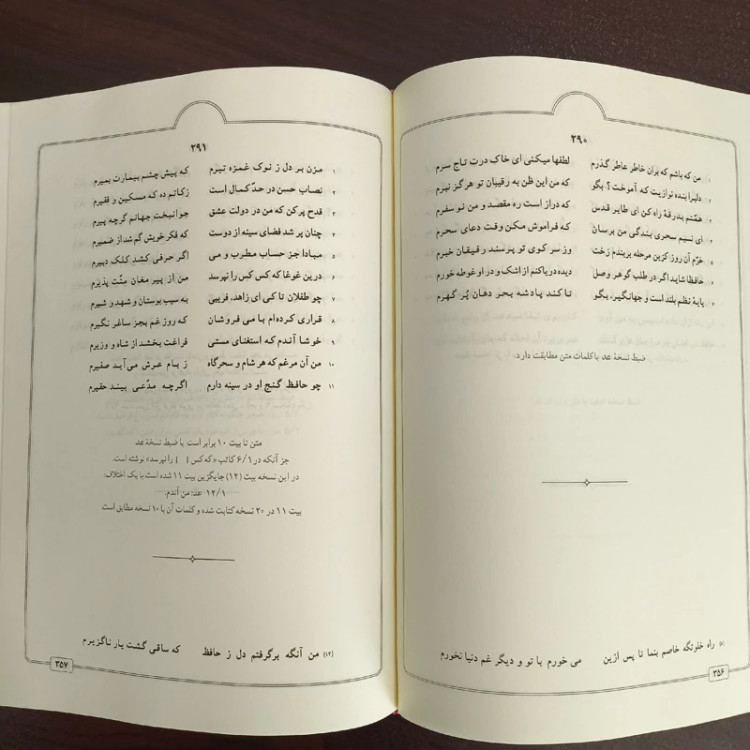 ۲۹۰
۱ من که باشم که بران خاطر عاطر گذرم لطفها میکنی ای خاک درت تاج سرم
۲ دلبرا بنده نوازیت که آموخت؟ بگو که من این ظن به رقیبان تو هرگز نبرم
۳ همّتم بدرقهٔ راه کن ای طایر قدس که درازست ره مقصد و من نوسفرم
۴ ای نسیم سحری بندگی من برسان که فراموش مکن وقت دعای سحرم
۵ خرّم آن روز کزین مرحله بربندم رخت وز سر کوی تو پرسند رفیقان خبرم
۶ حافظا شاید اگر در طلب گوهر وصل دیده دریا کنم از اشک و در او غوطه خورم
۷ پایهٔ نظم بلند است و جهانگیر، بگو تا کند پادشه بحر دهان پُر گهرم
ضبط نسخهٔ عد با کلمات متن مطابقت دارد.
(۸) راه خلوتگه خاصم بنما تا پس ازین می خورم با تو و دیگر غم دنیا نخورم
۳۵۶
۲۹۱
۱ مزن بر دل ز نوک غمزه تیرم که پیش چشم بیمارت بمیرم
۲ نصاب حسن در حدّ کمال است زکاتم ده که مسکین و فقیرم
۳ قدح پر کن که من در دولت عشق جوانبخت جهانم گرچه پیرم
۴ چنان پر شد فضای سینه از دوست که فکر خویش گم شد از ضمیرم
۵ مبادا جز حساب مطرب و می اگر حرفی کشد کلک دبیرم
۶ درین غوغا که کس کس را نپرسد من از پیر مغان منّت پذیرم
۷ چو طفلان تا کی ای زاهد، فریبی به سیب بوستان و شهد و شیرم
۸ قراری کرده‌ام با می فروشان که روز غم بجز ساغر نگیرم
۹ خوشا آندم که استغنای مستی فراغت بخشد از شاه و وزیرم
۱۰ من آن مرغم که هر شام و سحرگاه ز بام عرش می‌آید صفیرم
۱۱ چو حافظ گنج او در سینه دارم اگرچه مدّعی بیند حقیرم
متن تا بیت ۱۰ برابر است با ضبط نسخهٔ عد
جز آنکه در ۶/۱ کاتب «که کس [ ] را نپرسد» نوشته است.
در این نسخه بیت (۱۲) جایگزین بیت ۱۱ شده است با یک اختلاف:
۱۲/۱ عد: من آندم.
بیت ۱۱ در ۲۰ نسخه کتابت شده و کلمات آن با ۱۰ نسخه مطابق است.
(۱۲) من آنگه برگرفتم دل ز حافظ که ساقی گشت یار ناگزیرم
۳۵۷